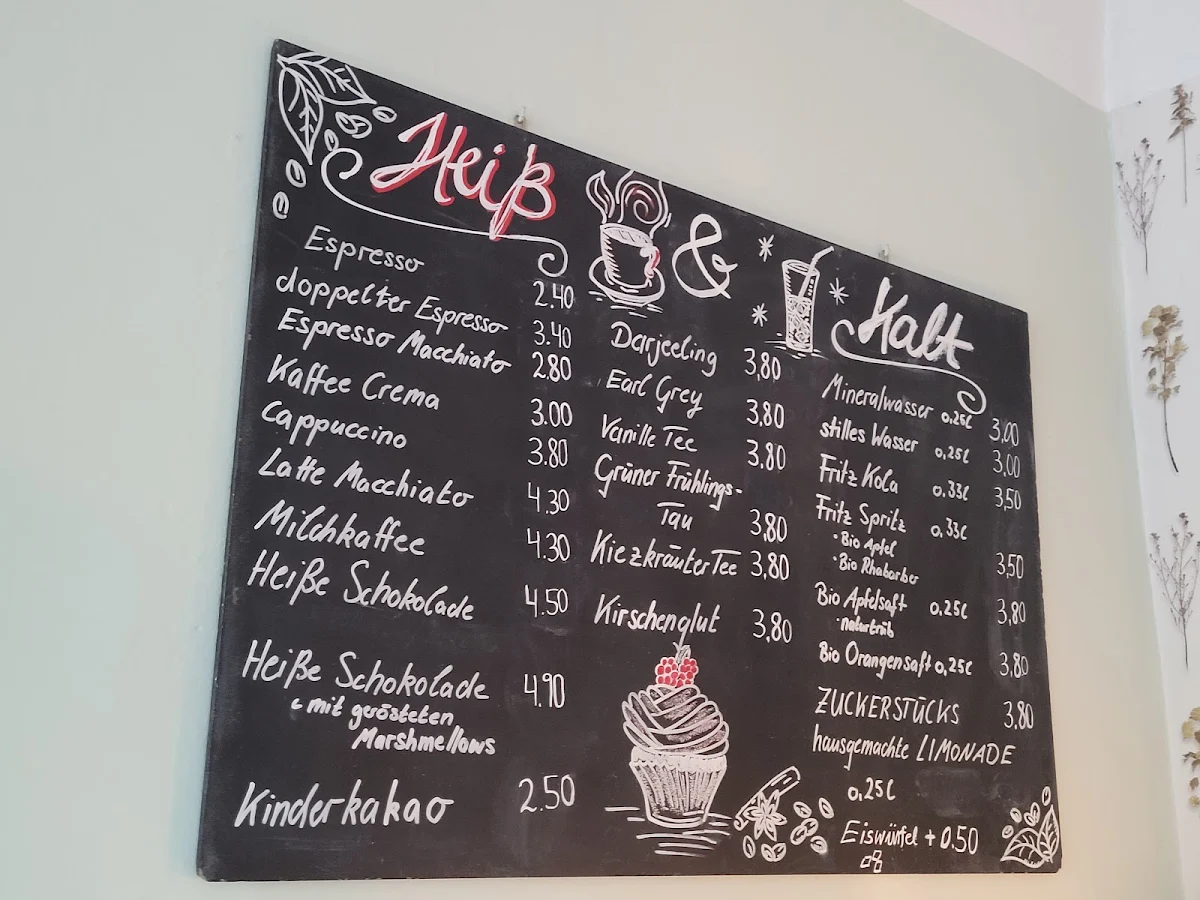 Heiß & Kalt
Espresso 2.40
doppelter Espresso 3.40
Espresso Macchiato 2.80
Kaffee Crema 3.00
Cappuccino 3.80
Latte Macchiato 4.30
Milchkaffee 4.30
Heiße Schokolade 4.50
Heiße Schokolade 4.90
mit gerösteten
Marshmellows
Kinderkakao 2.50
Darjeeling 3,80
Earl Grey 3,80
Vanille Tee 3,80
Grüner Frühlings-
Tau 3,80
KiezkräuterTee 3,80
Kirschenglut 3,80
Mineralwasser 0,25l 3,00
stilles Wasser 0,25l 3,00
Fritz Kola 0,33l 3,50
Fritz Spritz 0,33l
· Bio Apfel
· Bio Rhabarber 3,50
Bio Apfelsaft 0,25l 3,80
· naturtrüb
Bio Orangensaft 0,25l 3,80
ZUCKERSTÜCKS 3,80
hausgemachte LIMONADE
0,25l
Eiswürfel + 0.50